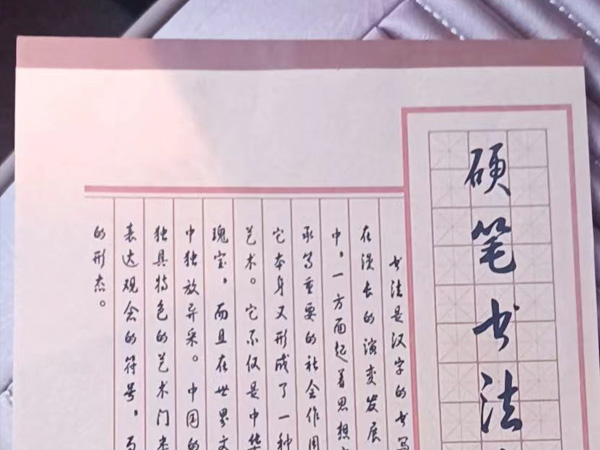 硬笔书法
书法是汉字的书写
在漫长的演变发展
中，一方面起着思想
承等重要的社会作用
它本身又形成了一种
艺术。它不仅是中华
瑰宝，而且在世界文
中独放异采。中国的
独具特色的艺术门类
表达观念的符号，
的形态。